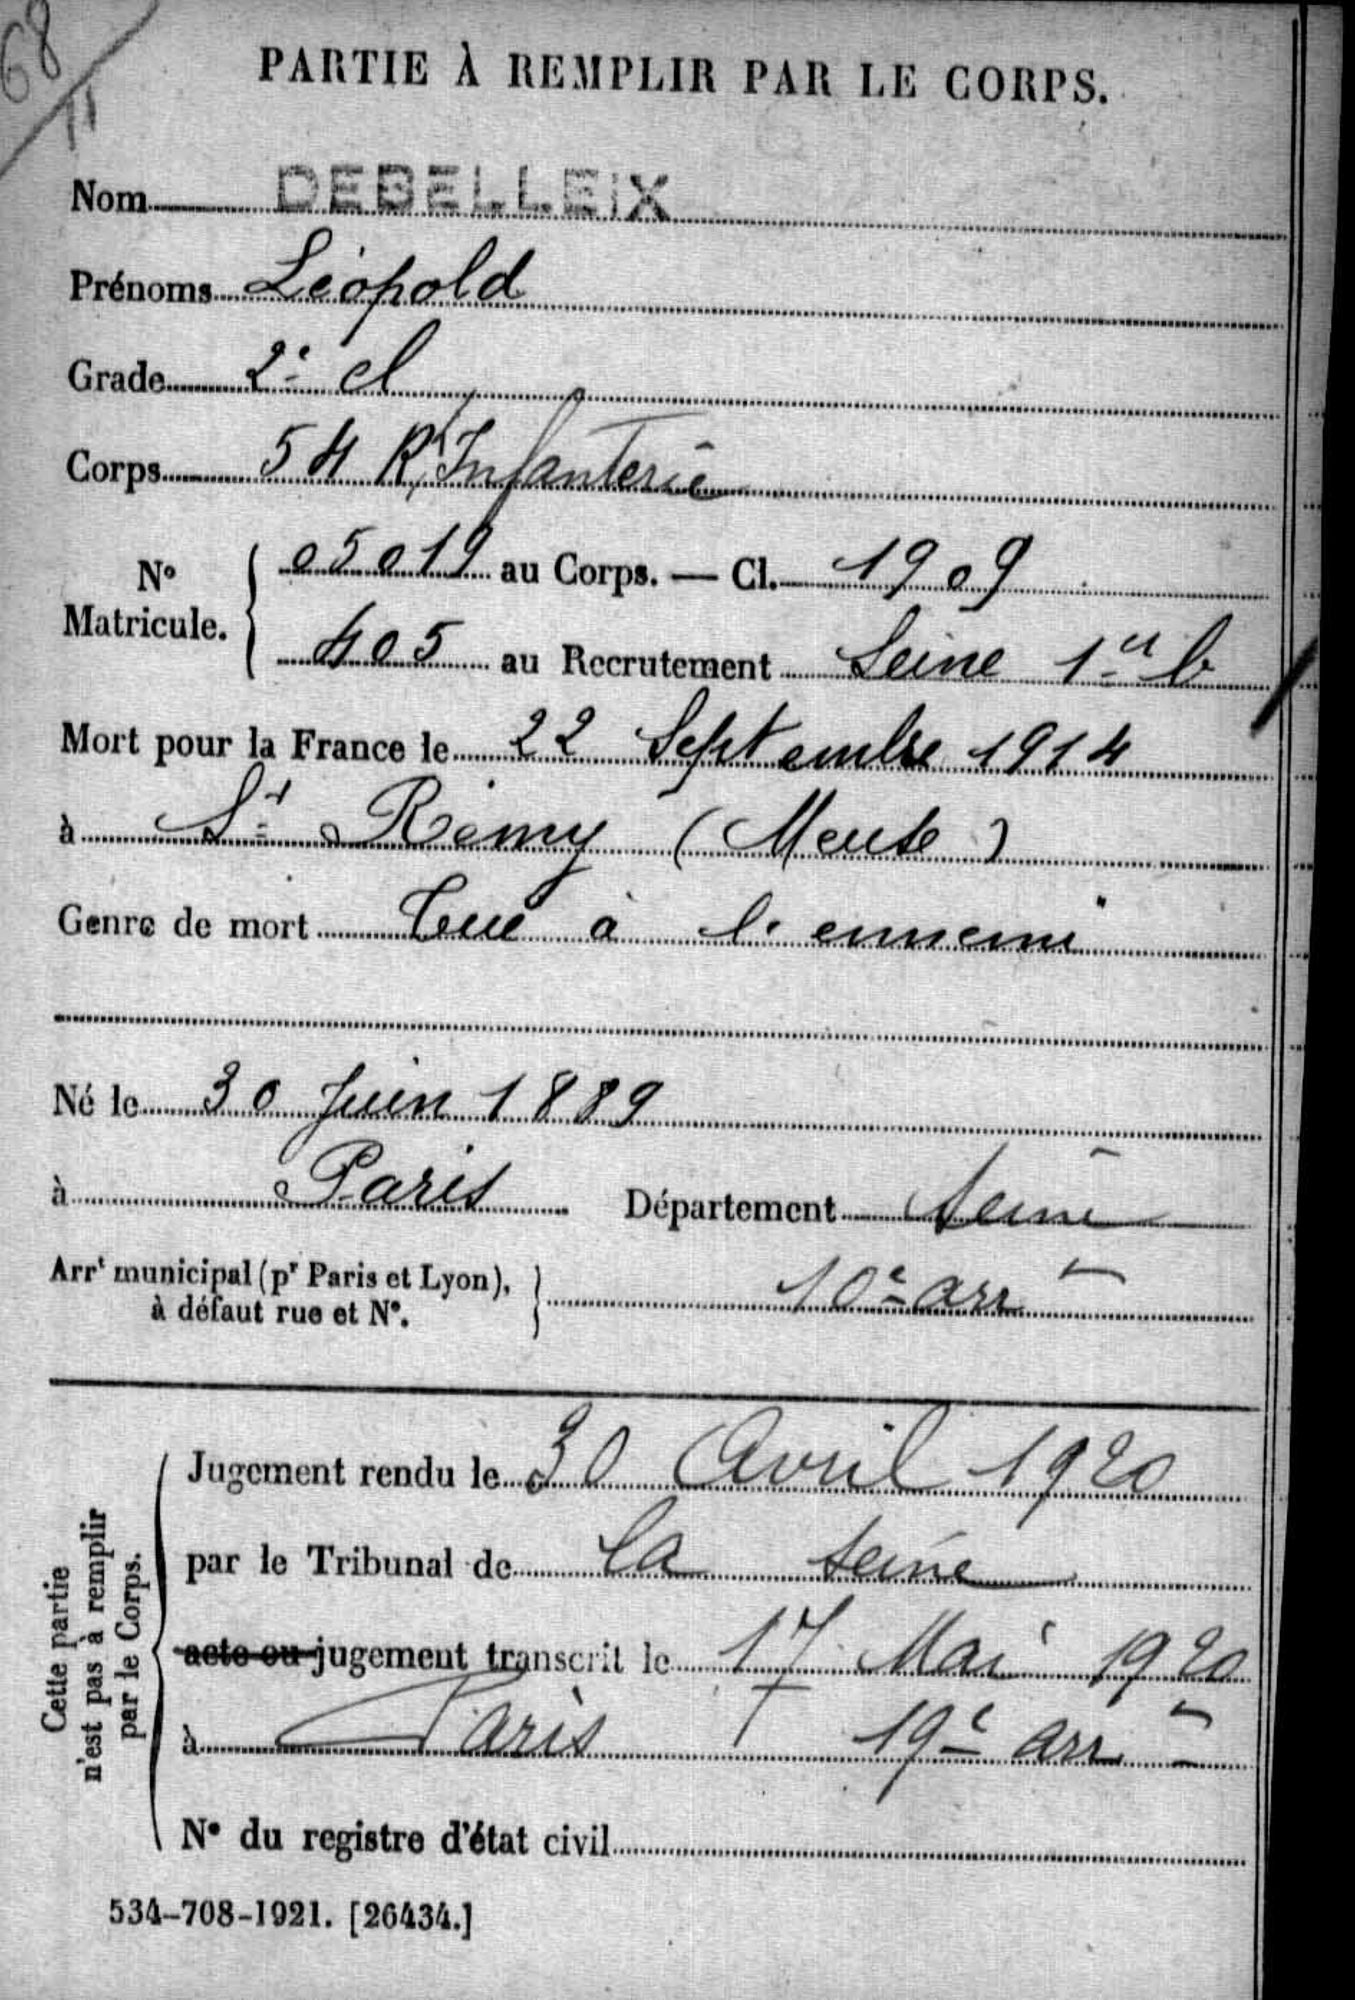 68
11
PARTIE À REMPLIR PAR LE CORPS.
Nom DEBELLEIX
Prénoms Léopold
Grade 2e cl
Corps 54 Rt Infanterie
No Matricule. 05019 au Corps. — Cl. 1909
405 au Recrutement Seine 1er b
Mort pour la France le 22 Septembre 1914
à St Rémy (Meuse)
Genre de mort Tué à l'ennemi
Né le 30 Juin 1889
à Paris Département Seine
Arrt municipal (pr Paris et Lyon), à défaut rue et No. 10e arrt
Cette partie n'est pas à remplir par le Corps.
Jugement rendu le 30 Avril 1920
par le Tribunal de la Seine
acte ou jugement transcrit le 17 Mai 1920
à Paris 19e arrt
No du registre d'état civil
534-708-1921. [26434.]